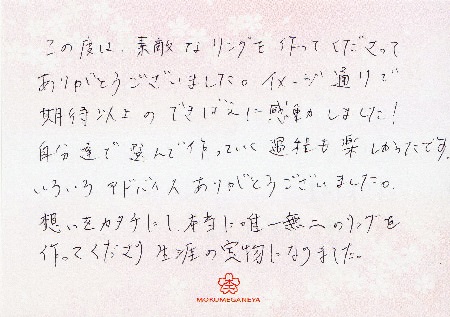 この度は、素敵なリングを作ってくださって
ありがとうございました。イメージ通りで
期待以上のできばえに感動しました!
自分達で選んで作っていく過程も楽しめたです。
いろいろアドバイスありがとうございました。
想いをカタチにし、本当に唯一無二のリングを
作ってくださり生涯の宝物になりました。
MOKUMEGANEYA